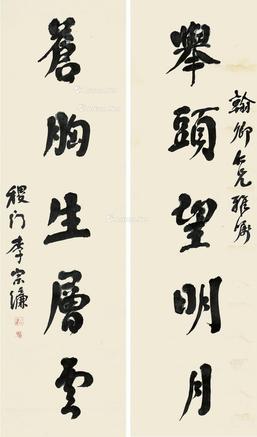 舉頭望明月
翰卿仁兄雅属
蒼胸生層雲
稷門李宗濂